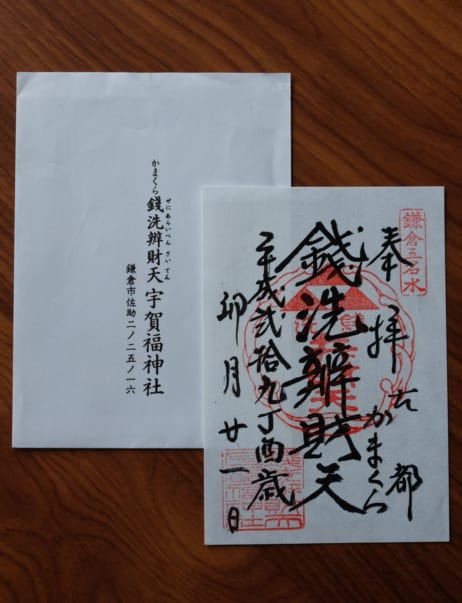 ぜにあらいべんざいてん
かまくら 錢洗辨財天 宇賀福神社
鎌倉市佐助二ノ二五ノ一六
鎌倉五名水
奉拝
古都
かまくら
錢洗辨財天
平成弐拾九丁酉歳
卯月廿一日